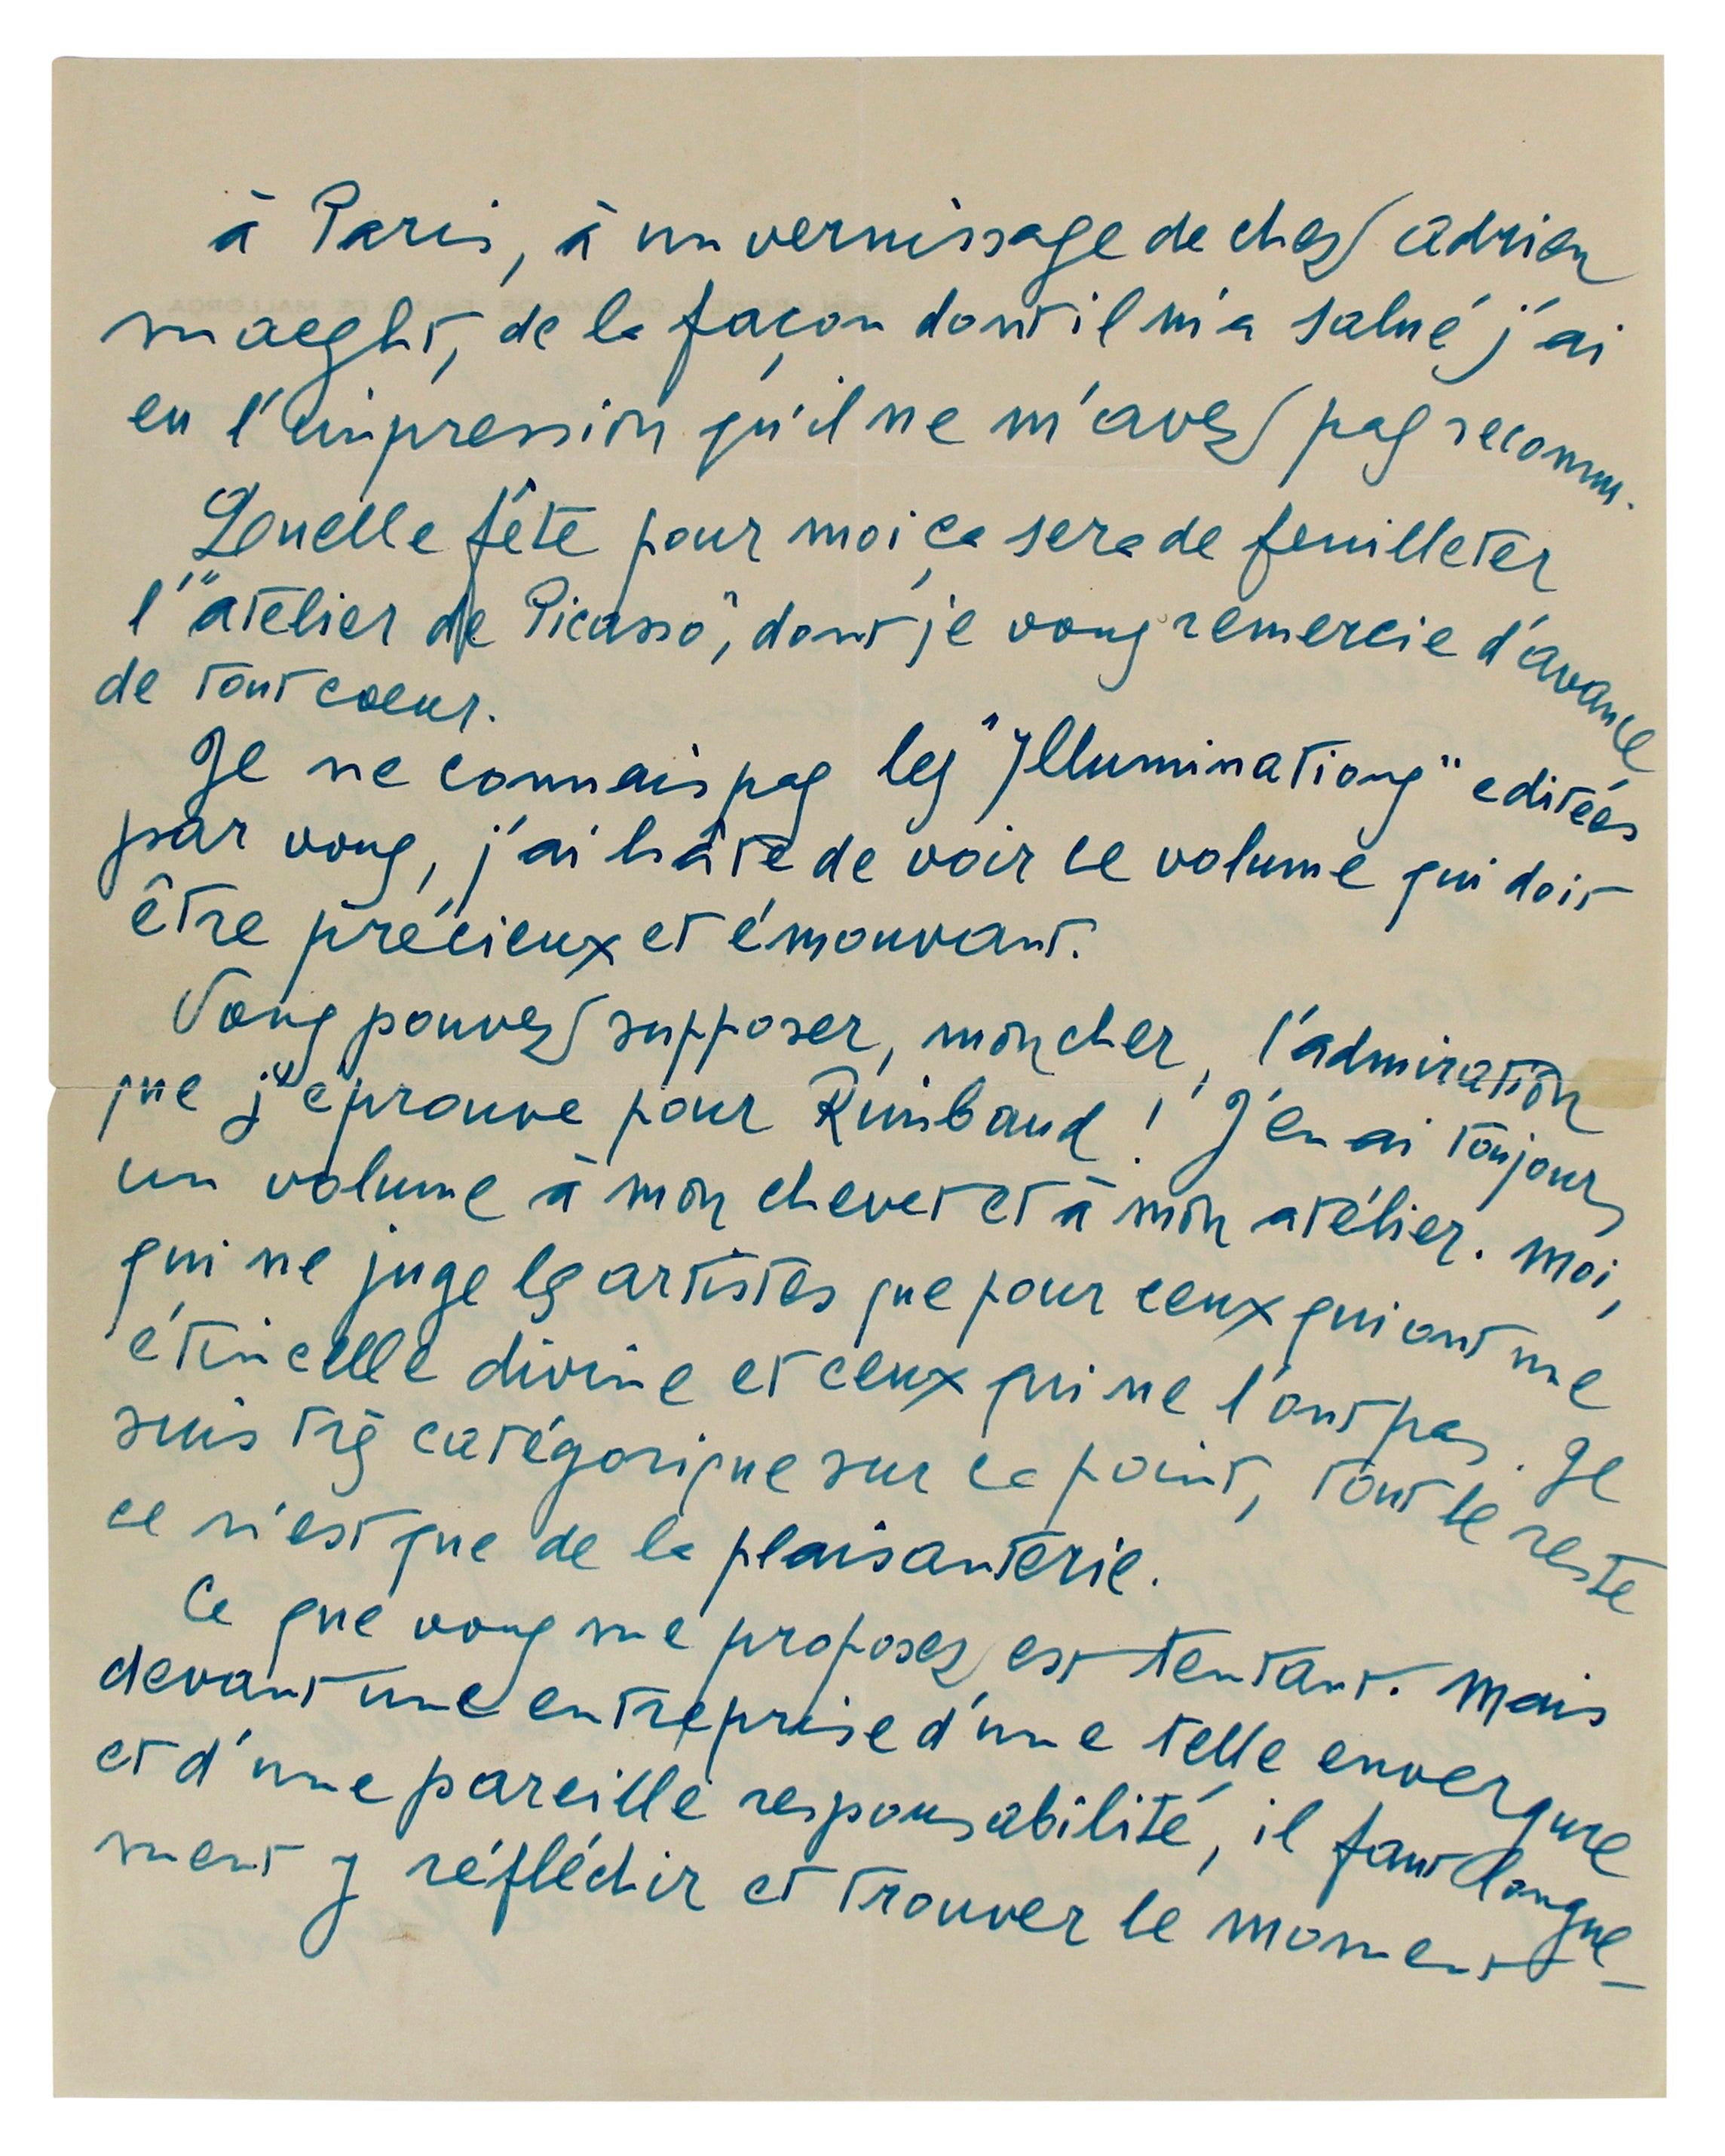 à Paris, à un vernissage de chez Adrien
Maeght, de la façon dont il m'a salué j'ai
eu l'impression qu'il ne m'avez pas reconnu.
Quelle fête pour moi ça sera de feuilleter
l'"atelier de Picasso", dont je vous remercie d'avance
de tout coeur.
Je ne connais pas les "Illuminations" editées
par vous, j'ai hâte de voir ce volume qui doit
être précieux et émouvant.
Vous pouvez supposer, mon cher, l'admiration
que j'éprouve pour Rimbaud ! J'en ai toujours
un volume à mon chevet et à mon atélier. Moi,
qui ne juge les artistes que pour ceux qui ont une
étincelle divine et ceux qui ne l'ont pas. Je
suis très catégorique sur ce point, tout le reste
ce n'est que de la plaisanterie.
Ce que vous me proposez est tentant. Mais
devant une entreprise d'une telle envergure
et d'une pareille responsabilité, il faut longue-
ment y réfléchir et trouver le moment